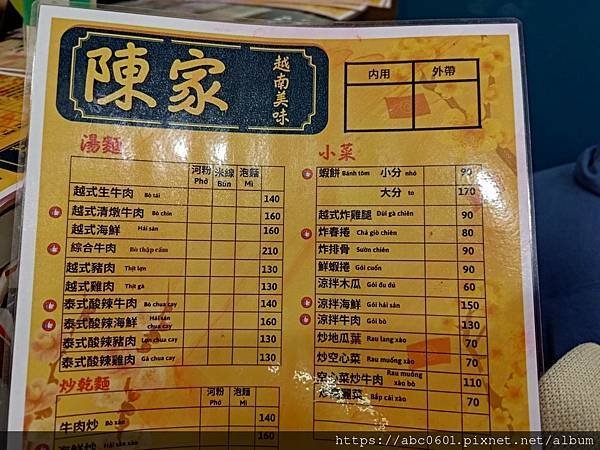 陳家
越南美味
內用 外帶
湯麵
河粉 Phở 米線 Bún 泡麵 Mì
越式生牛肉 Bò tái 140
越式清燉牛肉 Bò chín 160
越式海鮮 Hải sản 160
綜合牛肉 Bò thập cẩm 210
越式豬肉 Thịt lợn 130
越式雞肉 Thịt gà 130
泰式酸辣牛肉 Bò chua cay 140
泰式酸辣海鮮 Hải sản chua cay 160
泰式酸辣豬肉 Lợn chua cay 130
泰式酸辣雞肉 Gà chua cay 130
炒乾麵
河粉 Phở 泡麵 Mì
牛肉炒 Bò xào 140
海鮮炒 Hải sản xào 160
小菜
蝦餅 Bánh tôm 小分 nhỏ 90
大分 to 170
越式炸雞腿 Đùi gà chiên 90
炸春捲 Chả giò chiên 80
炸排骨 Sườn chiên 90
鮮蝦捲 Gỏi cuốn 90
涼拌木瓜 Gỏi đu đủ 60
涼拌海鮮 Gỏi hải sản 150
涼拌牛肉 Gỏi bò 130
炒地瓜葉 Rau lang xào 70
炒空心菜 Rau muống xào 70
空心菜炒牛肉 Rau muống xào bò 110
炒高麗菜 Bắp cải xào 70
https://abc0601.pixnet.net/album